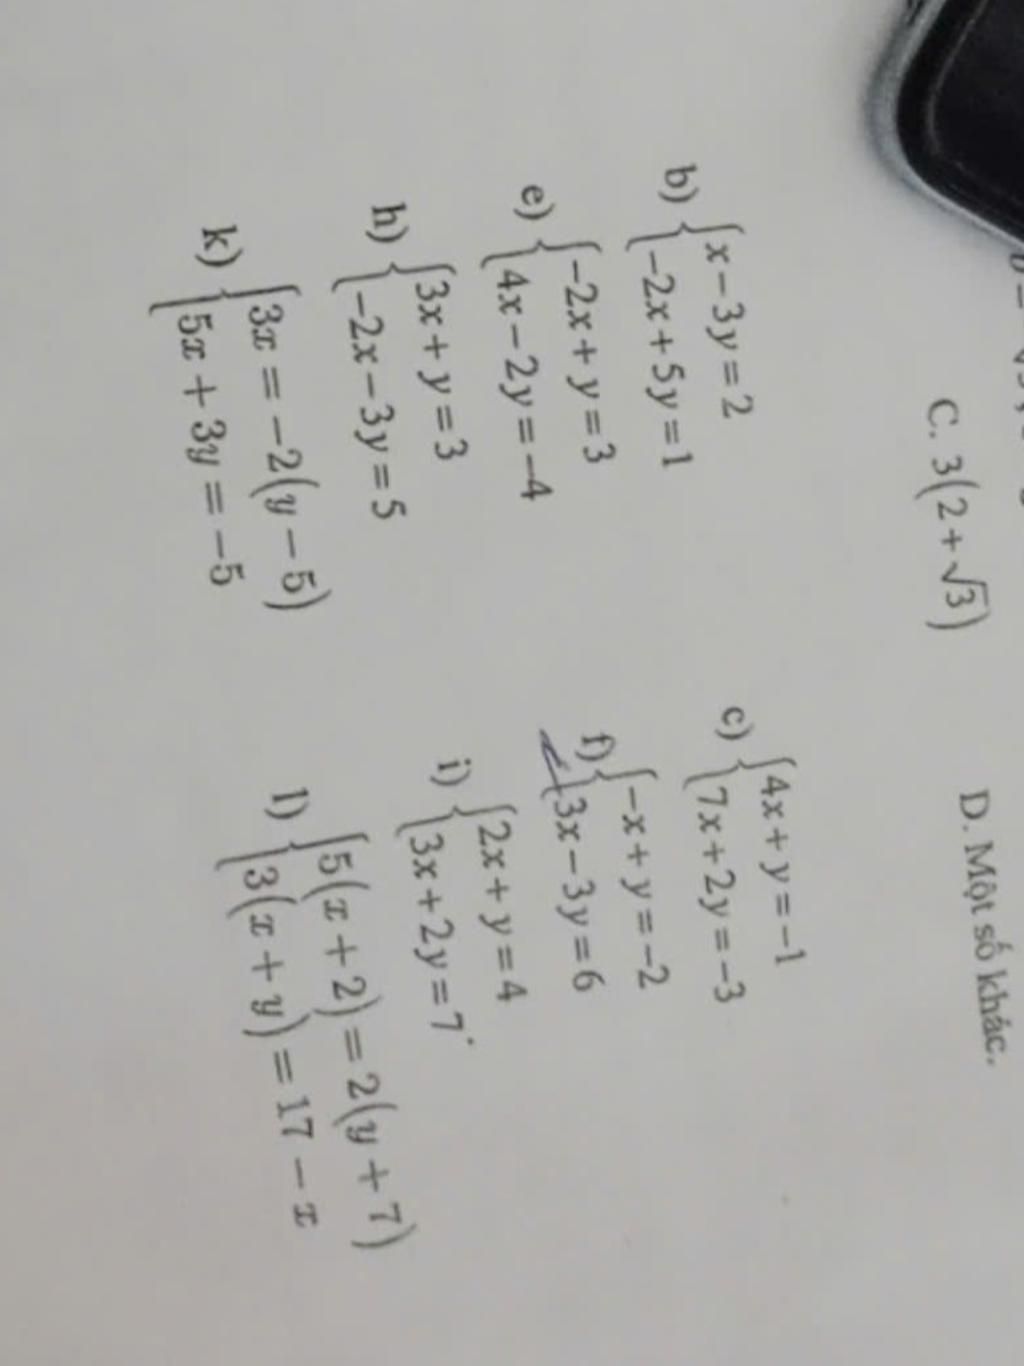 C. 3(2+√3) D. Một số khác.
b) {x−3y=2
−2x+5y=1
c) {4x+y=−1
7x+2y=−3
e) {−2x+y=3
4x−2y=−4
f) {−x+y=−2
3x−3y=6
h) {3x+y=3
−2x−3y=5
i) {2x+y=4
3x+2y=7.
k) {3x = −2(y − 5)
5x + 3y = −5
l) {5(x + 2) = 2(y + 7)
3(x + y) = 17 − x